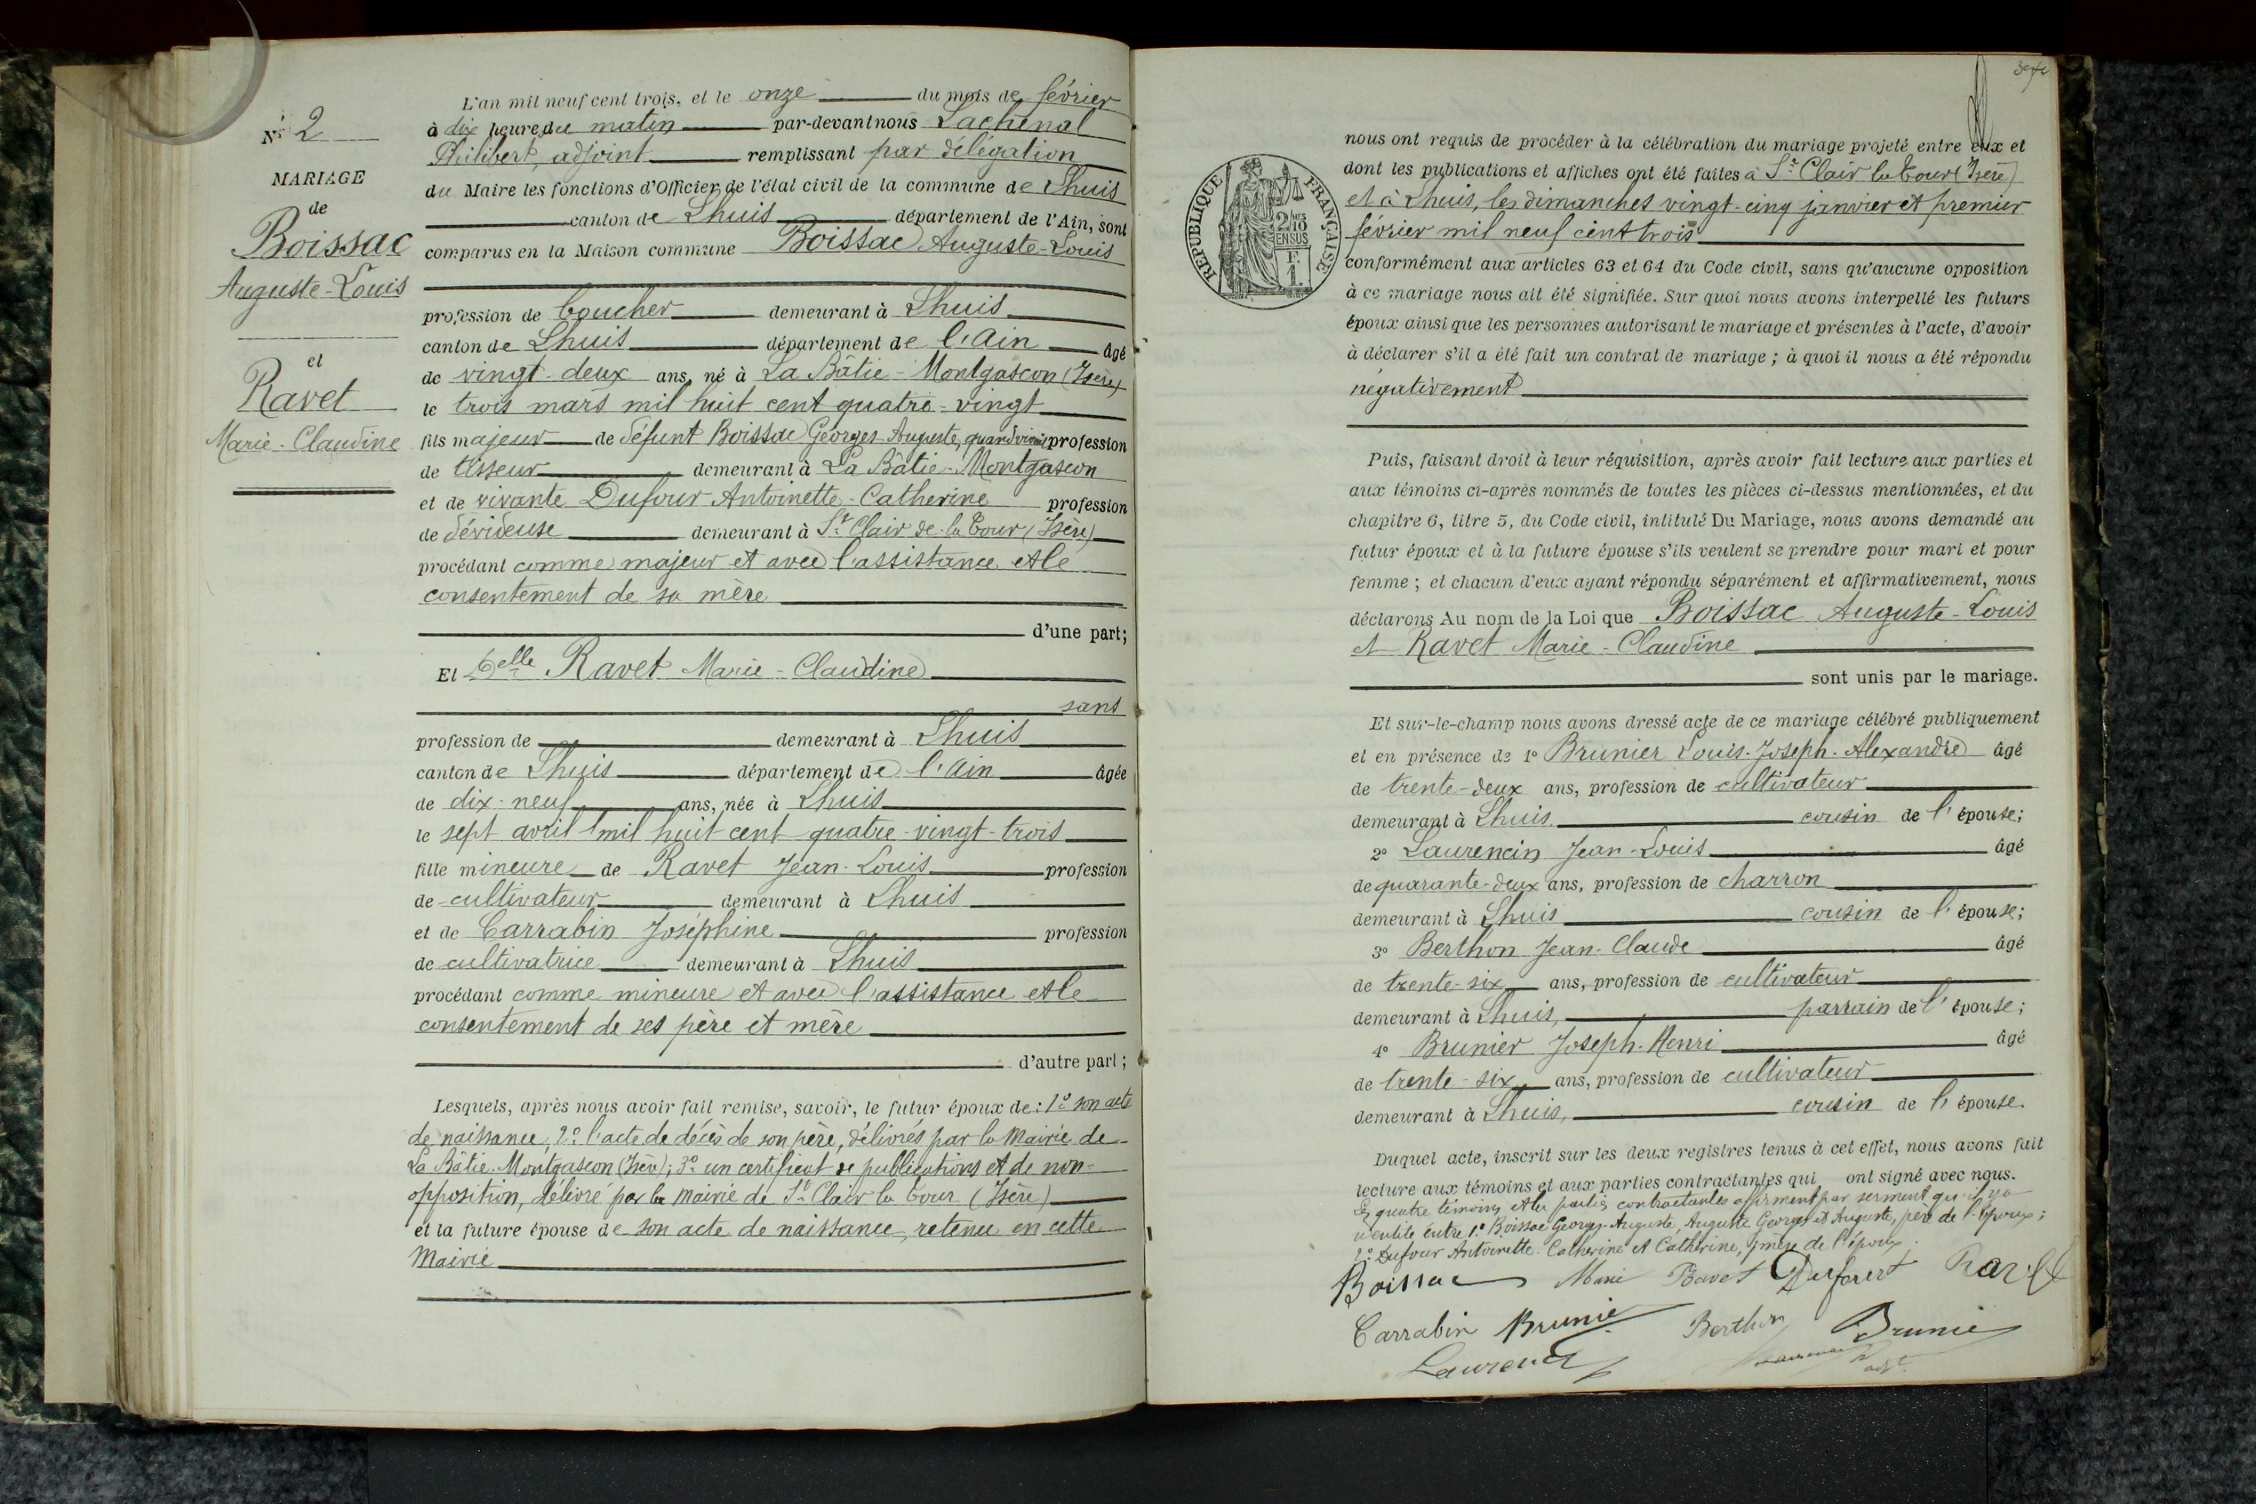 N° 2
MARIAGE
de
Boissac
Auguste-Louis
et
Ravet
Marie-Claudine
L'an mil neuf cent trois, et le onze du mois de février
à dix heure du matin par-devant nous Lachenal
Philibert, adjoint remplissant par délégation
du Maire les fonctions d'Officier de l'état civil de la commune de Lhuis
canton de Lhuis département de l'Ain, sont
comparus en la Maison commune Boissac Auguste-Louis
profession de boucher demeurant à Lhuis
canton de Lhuis département de l'Ain âgé
de vingt-deux ans, né à La Bâtie-Montgascon (Isère)
le trois mars mil huit cent quatre-vingt
fils majeur de défunt Boissac Georges Auguste, quand vivait profession
de tisseur demeurant à La Bâtie-Montgascon
et de vivante Dufour Antoinette-Catherine profession
de dévideuse demeurant à St Clair de la Tour (Isère)
procédant comme majeur et avec l'assistance et le
consentement de sa mère
d'une part;
Et Delle Ravet Marie-Claudine
sans
profession de demeurant à Lhuis
canton de Lhuis département de l'Ain âgée
de dix-neuf ans, née à Lhuis
le sept avril mil huit cent quatre-vingt-trois
fille mineure de Ravet Jean-Louis profession
de cultivateur demeurant à Lhuis
et de Carrabin Joséphine profession
de cultivatrice demeurant à Lhuis
procédant comme mineure et avec l'assistance et le
consentement de ses père et mère
d'autre part;
Lesquels, après nous avoir fait remise, savoir, le futur époux de: 1° son acte
de naissance, 2° l'acte de décès de son père, délivrés par la Mairie de
La Bâtie-Montgascon (Isère); 3° un certificat de publications et de non-
opposition, délivré par la mairie de St Clair la Tour (Isère)
et la future épouse de son acte de naissance, retenu en cette
Mairie
RÉPUBLIQUE FRANÇAISE
nous ont requis de procéder à la célébration du mariage projeté entre eux et
dont les publications et affiches ont été faites à St Clair la Tour (Isère)
et à Lhuis, les dimanches vingt-cinq janvier et premier
février mil neuf cent trois
conformément aux articles 63 et 64 du Code civil, sans qu'aucune opposition
à ce mariage nous ait été signifiée. Sur quoi nous avons interpellé les futurs
époux ainsi que les personnes autorisant le mariage et présentes à l'acte, d'avoir
à déclarer s'il a été fait un contrat de mariage; à quoi il nous a été répondu
négativement
Puis, faisant droit à leur réquisition, après avoir fait lecture aux parties et
aux témoins ci-après nommés de toutes les pièces ci-dessus mentionnées, et du
chapitre 6, titre 5, du Code civil, intitulé Du Mariage, nous avons demandé au
futur époux et à la future épouse s'ils veulent se prendre pour mari et pour
femme; et chacun d'eux ayant répondu séparément et affirmativement, nous
déclarons Au nom de la Loi que Boissac Auguste-Louis
et Ravet Marie-Claudine
sont unis par le mariage.
Et sur-le-champ nous avons dressé acte de ce mariage célébré publiquement
et en présence de 1° Brunier Louis-Joseph-Alexandre âgé
de trente-deux ans, profession de cultivateur
demeurant à Lhuis cousin de l'épouse;
2° Laurencin Jean-Louis âgé
de quarante-deux ans, profession de charron
demeurant à Lhuis cousin de l'épouse;
3° Berthon Jean-Claude âgé
de trente-six ans, profession de cultivateur
demeurant à Lhuis, parrain de l'épouse;
4° Brunier Joseph-Henri âgé
de trente-six ans, profession de cultivateur
demeurant à Lhuis, cousin de l'épouse.
Duquel acte, inscrit sur les deux registres tenus à cet effet, nous avons fait
lecture aux témoins et aux parties contractantes qui ont signé avec nous.
Les quatre témoins et les parties contractantes affirment par serment qu'il y a
identité entre 1° Boissac Georges-Auguste, Auguste Georges et Auguste, père de l'époux;
2° Dufour Antoinette-Catherine et Catherine, mère de l'époux.
Boissac Marie Ravet Ravet
Carrabin Brunier Berthon Brunier
Laurencin